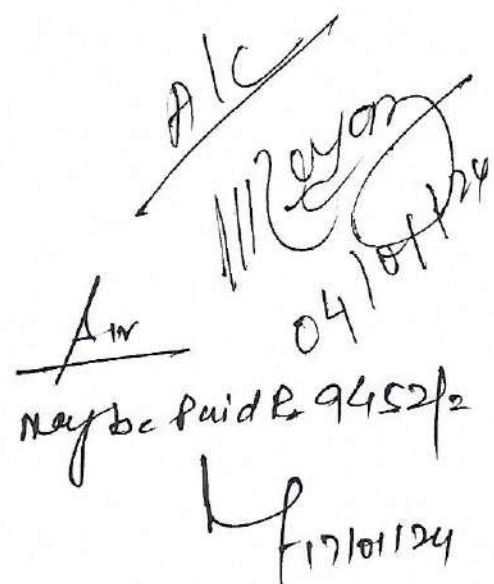 A/C
04/01/24
May be Paid Rs 9452/=
17/01/24